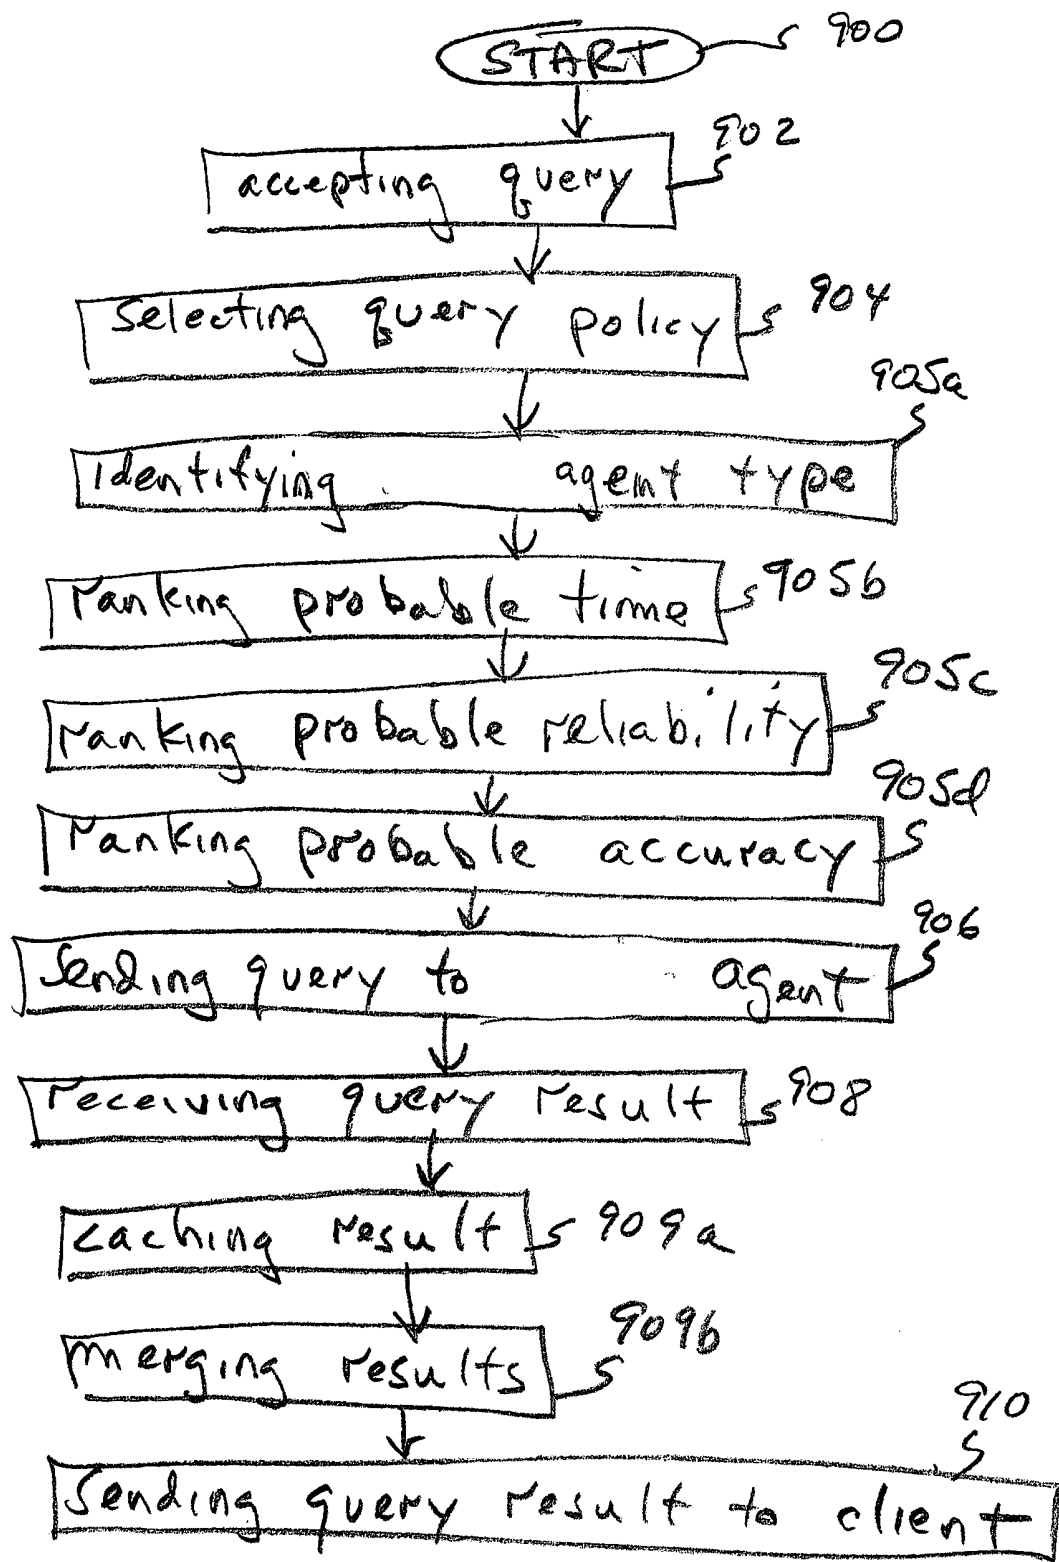 START 900
accepting query 902
selecting query policy 904
905a
identifying agent type
ranking probable time 905b
ranking probable reliability 905c
ranking probable accuracy 905d
sending query to agent 906
receiving query result 908
caching result 909a
merging results 909b
910
sending query result to client